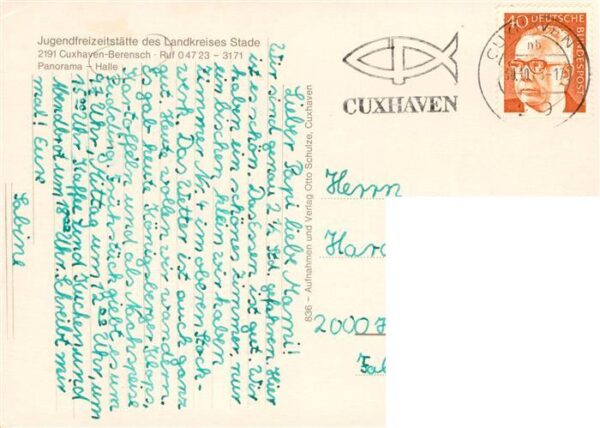 Jugendfreizeitstätte des Landkreises Stade
2191 Cuxhaven-Berensch - Ruf 0 47 23 - 3171
Panorama - Halle
CUXHAVEN
CUXHAVEN
40 DEUTSCHE BUNDESPOST
636 - Aufnahmen und Verlag Otto Schulze, Cuxhaven
Lieber Papi liebe Mami!
Wir sind genau 2 ½ Std. gefahren. Hier
ist es schön. Das Essen ist gut. Wir
haben ein schönes Zimmer, nur
ein bischen klein. Wir haben
Zimmer Nr. 4 im oberen Stock-
werk. Das Wetter ist auch ganz
gut. Heute wollen wir wandern.
Es gab heute Königsberger Klops,
Kartoffeln und als Nachspeise
Pudding. Frühstück giebt es um
Uhr, Mittag um 12 Uhr, um
15 Uhr Kaffee und Kuchen und
Abendbrot um 18 Uhr. Schreibt mir
mal! Eure
Sabine
Herrn
Har
2000